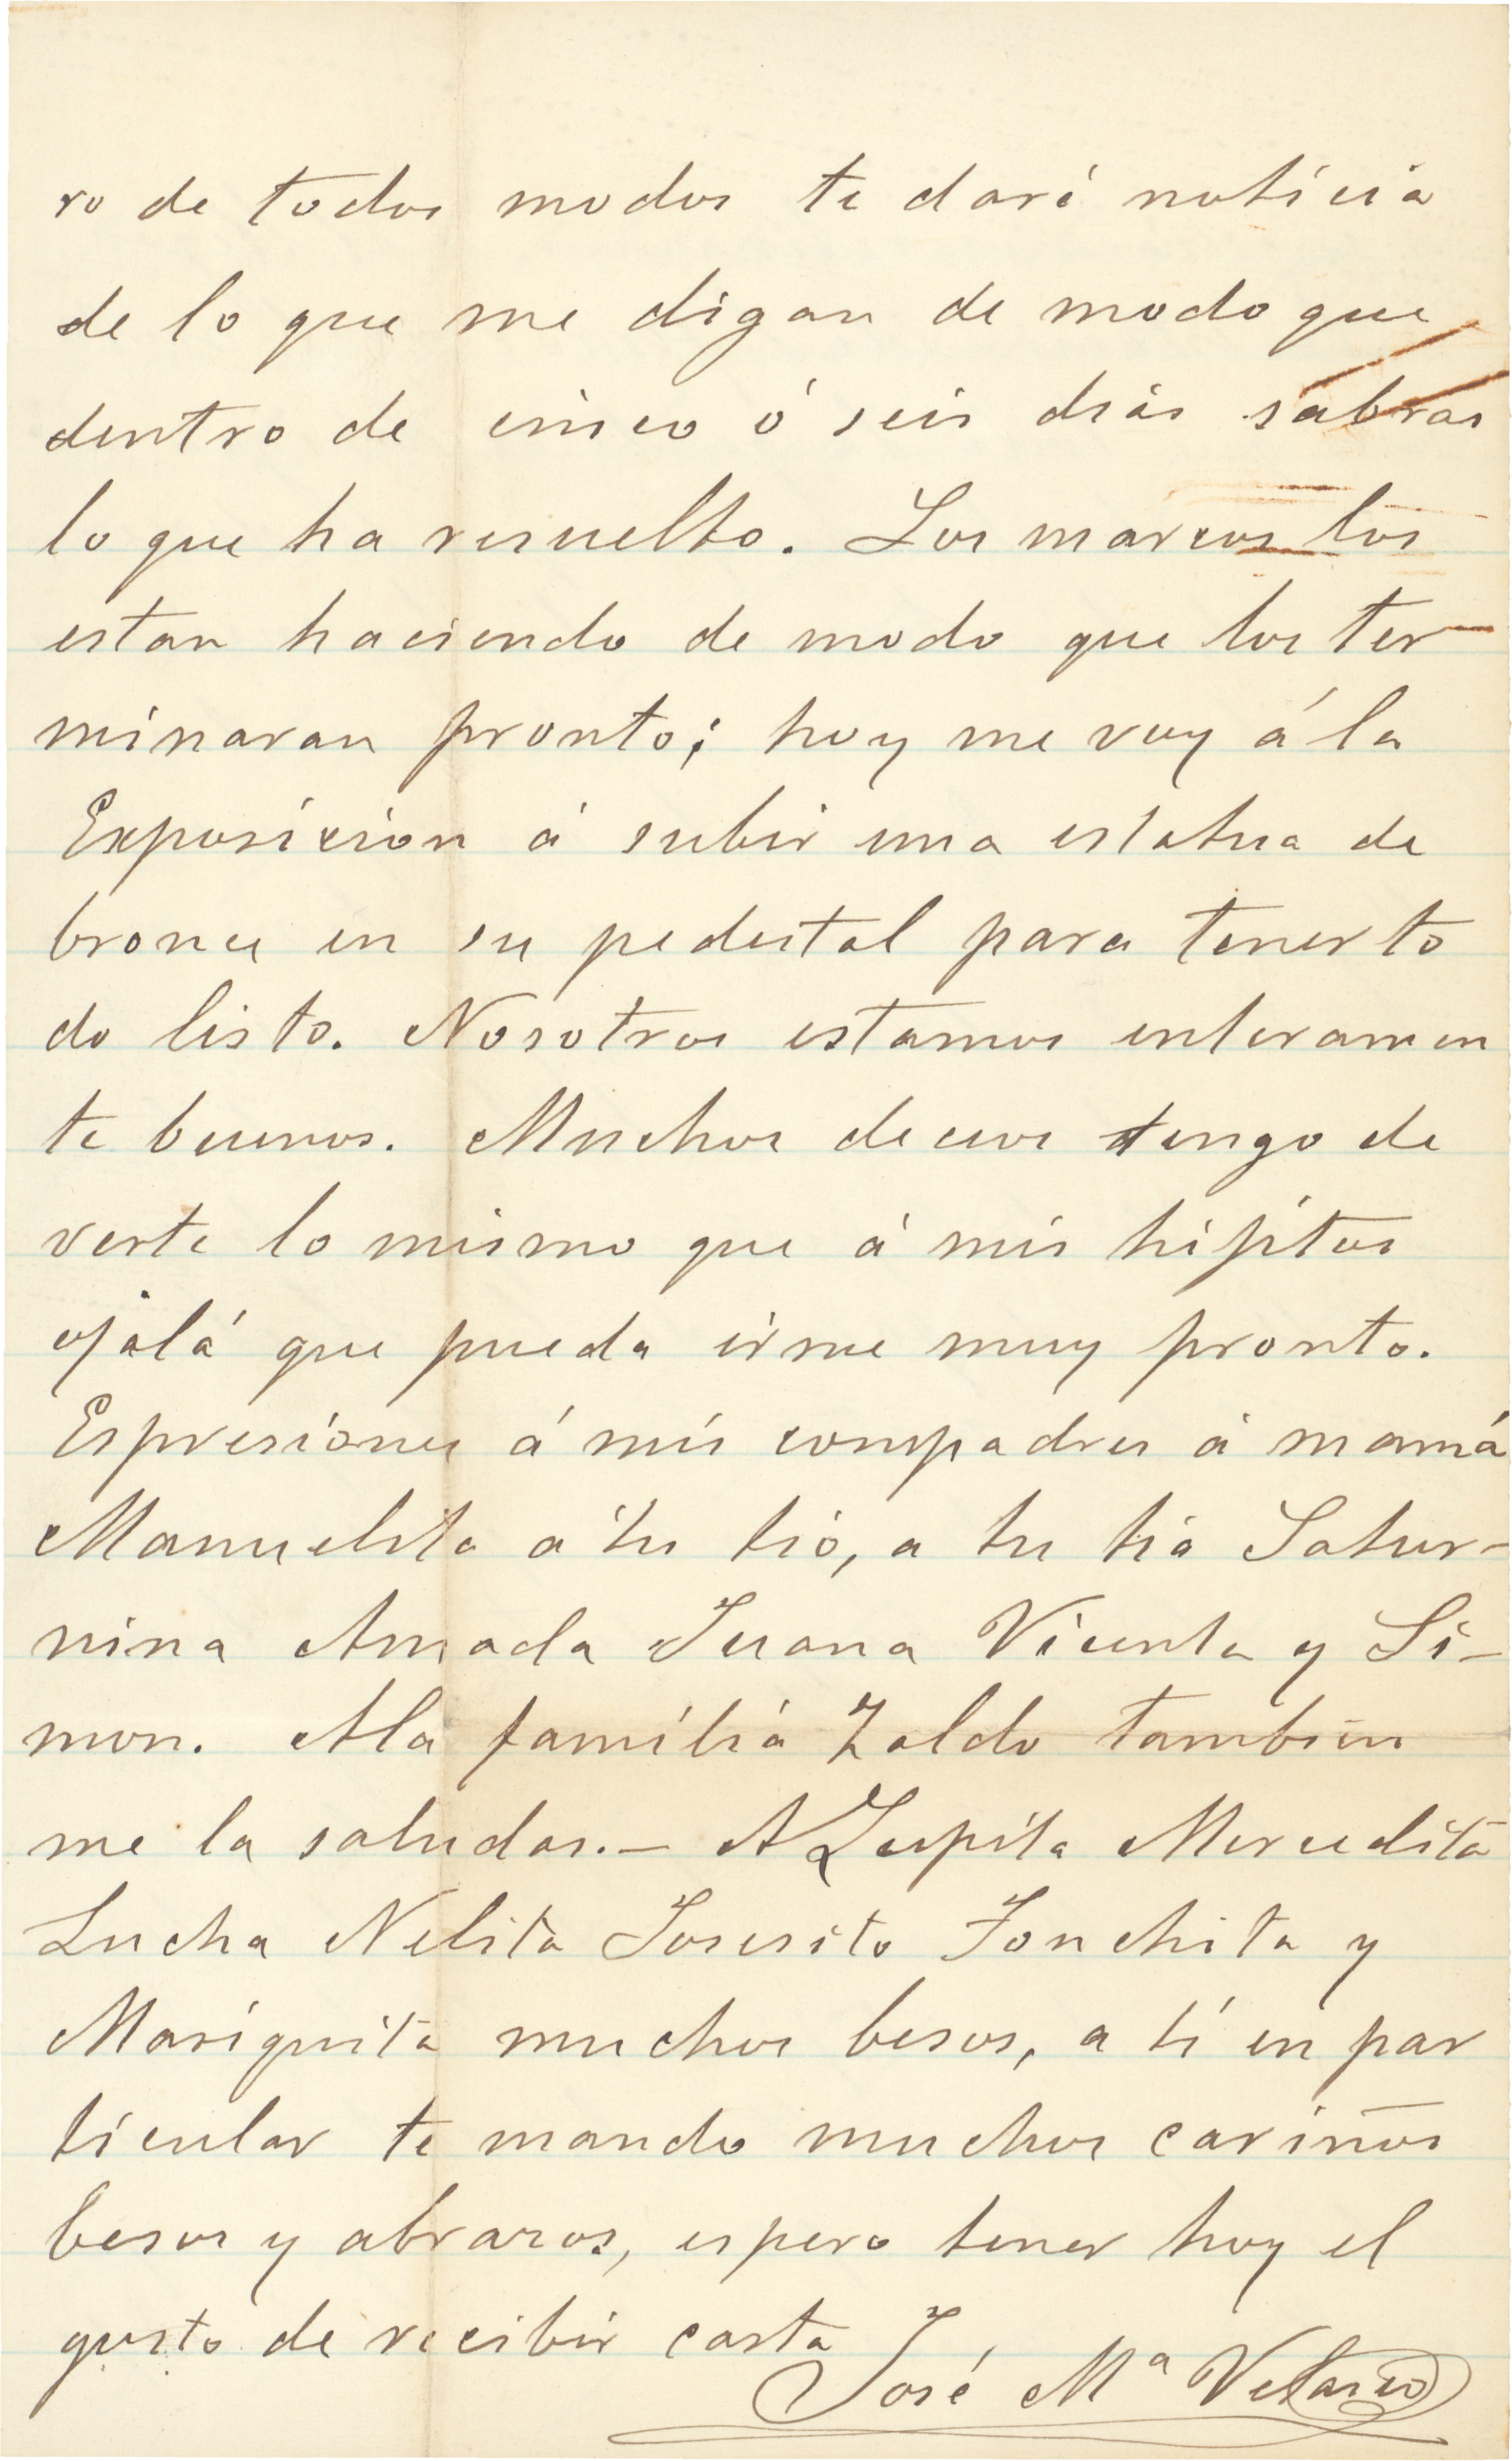 ro de todos modos te daré noticia
de lo que me digan de modo que
dentro de cinco ó seis dias sabras
lo que ha resuelto. Los marcos los
estan haciendo de modo que los ter-
minaran pronto; hoy me voy á la
Exposicion á subir una estatua de
bronce en su pedestal para tener to
do listo. Nosotros estamos enteramen
te buenos. Muchos deceos tengo de
verte lo mismo que á mis hijitos
ojalá que pueda irme muy pronto.
Espresiones á mis compadres á mamá
Manuelita á tu tio, a tu tia Satur-
nina Amada Juana Vicenta y Si-
mon. A la familia Zaldo tambien
me la saludas.- A Lupita Merceditas
Lucha Nelita Josesito Fonchita y
Mariquita muchos besos, a tí en par
ticular te mando muchos cariños
besos y abrazos, espero tener hoy el
gusto de recibir carta
José Mª Velasco